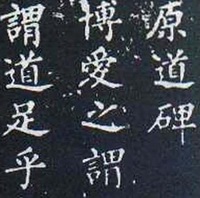 原道碑
博愛之謂
謂道足乎